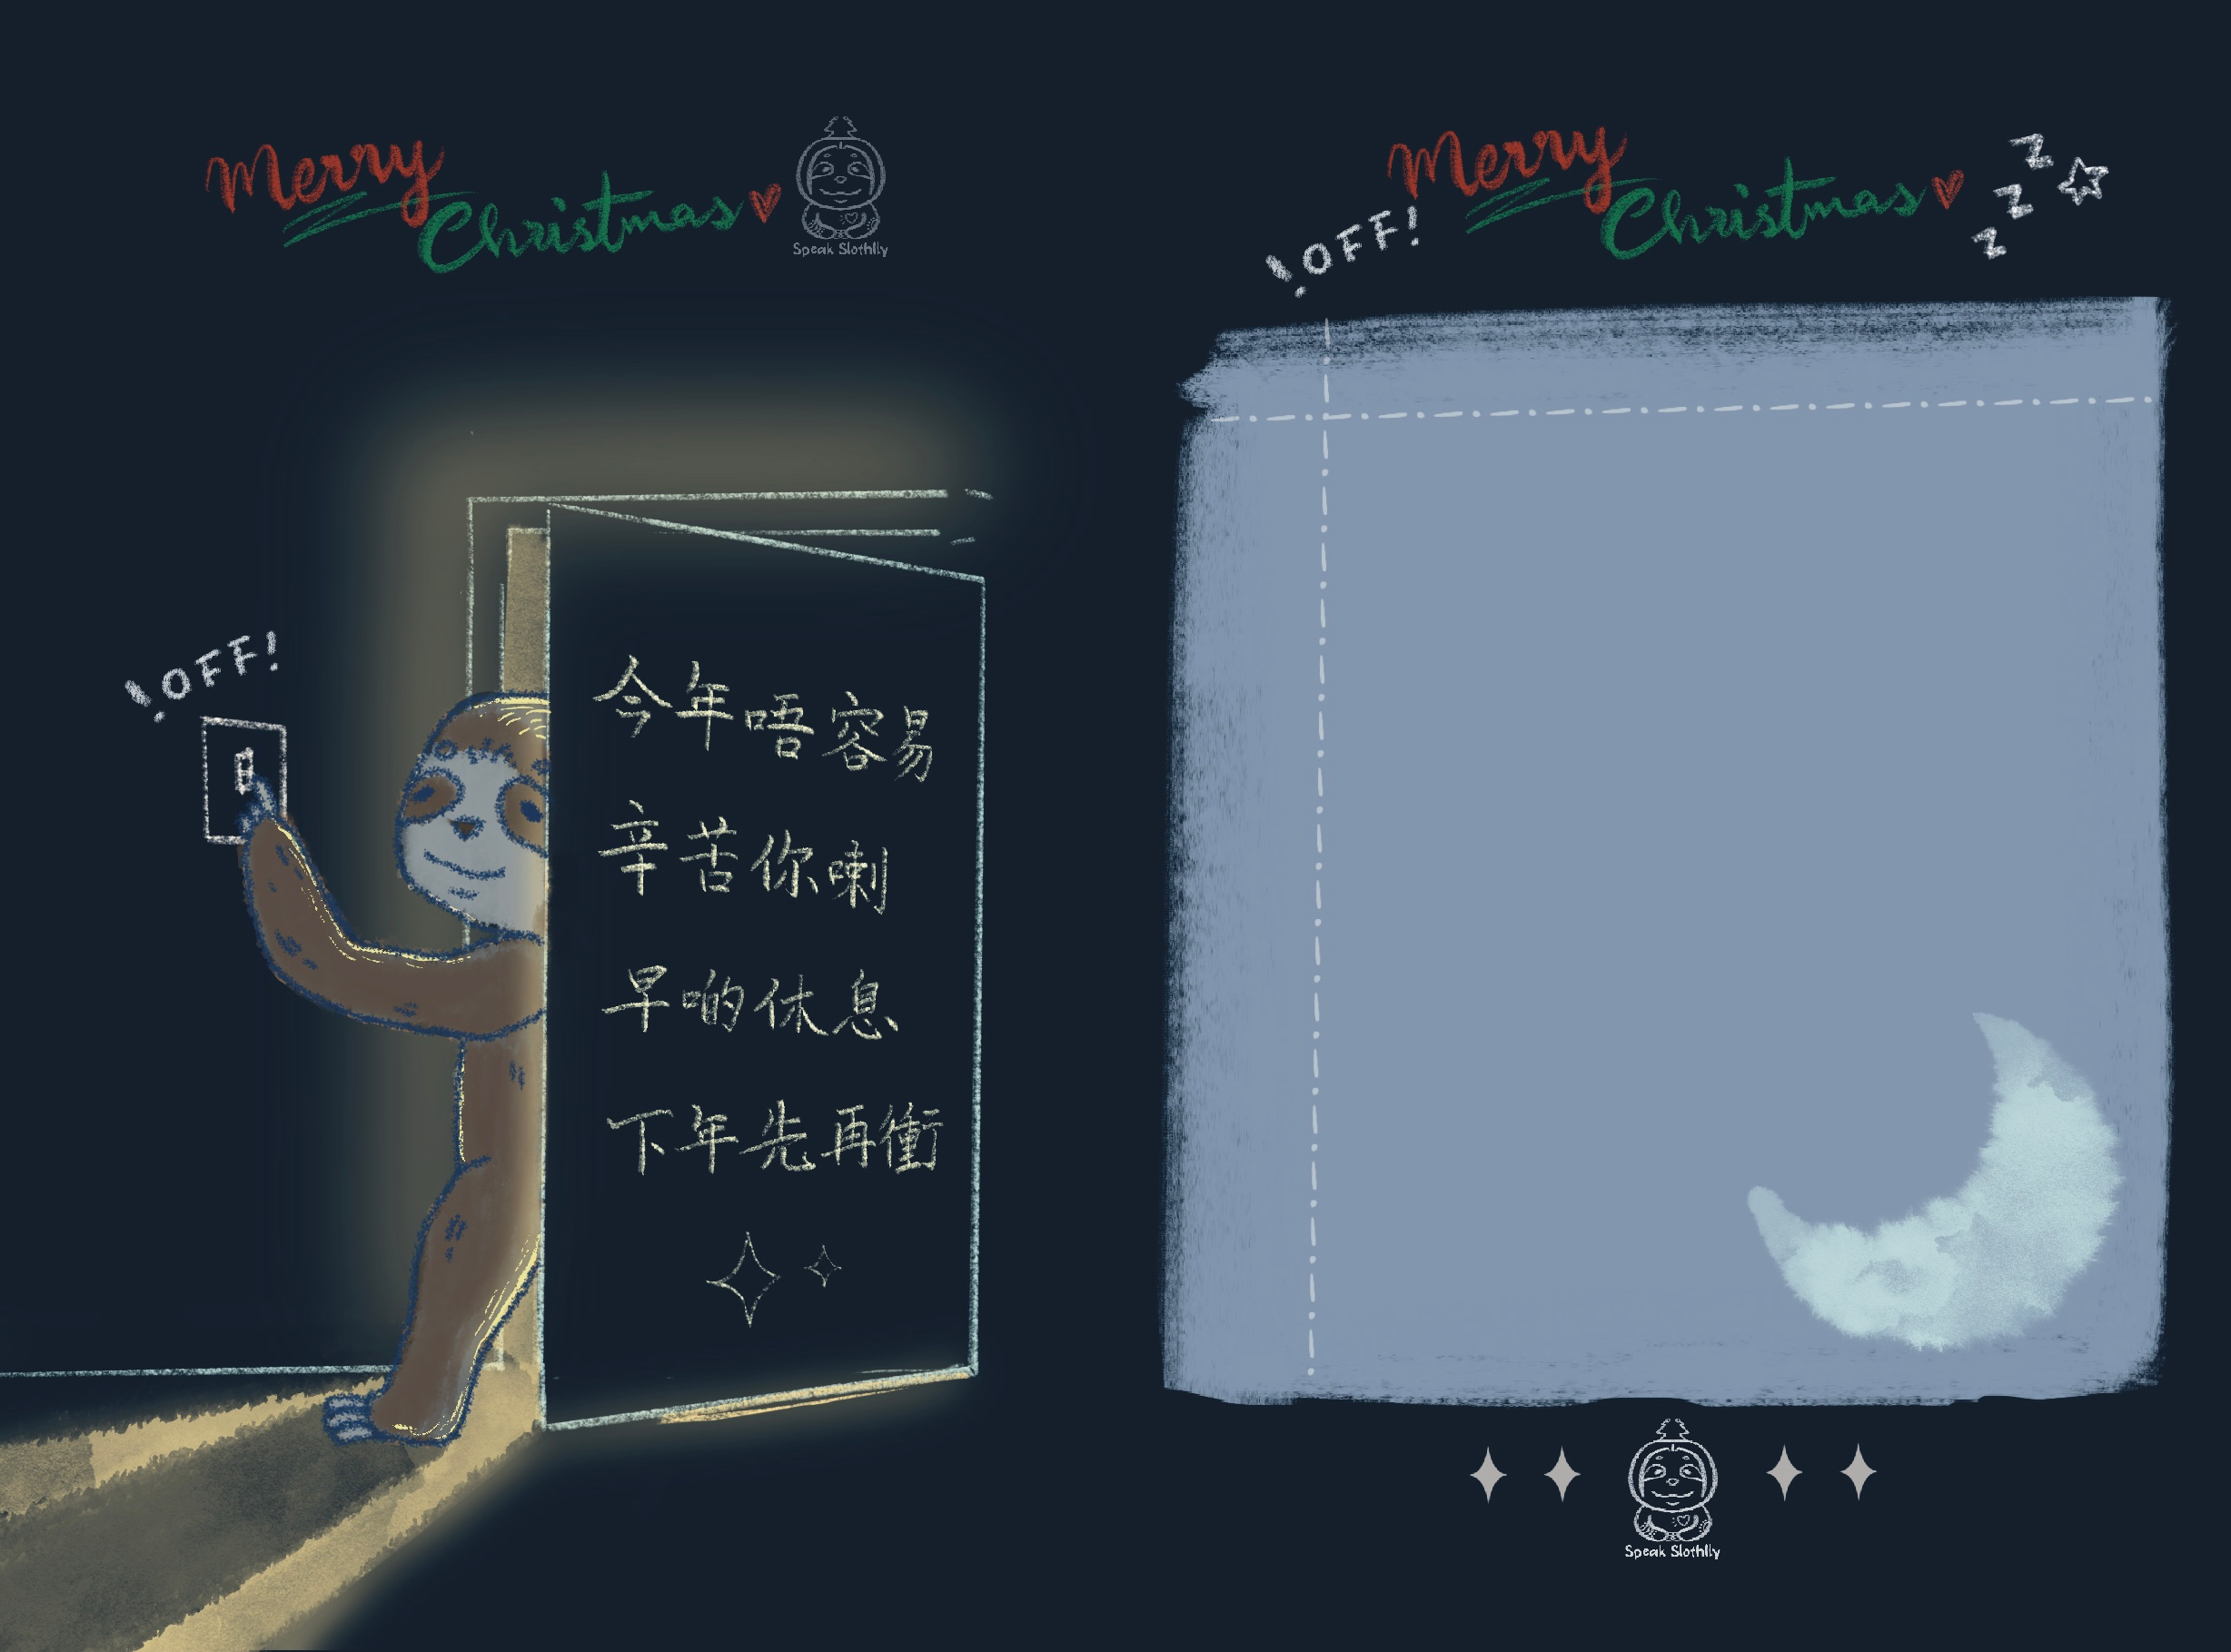 Merry
Christmas
Speak Slothlly
! OFF!
今年唔容易
辛苦你喇
早啲休息
下年先再衝
Merry
Christmas
z z z
! OFF!
Speak Slothlly